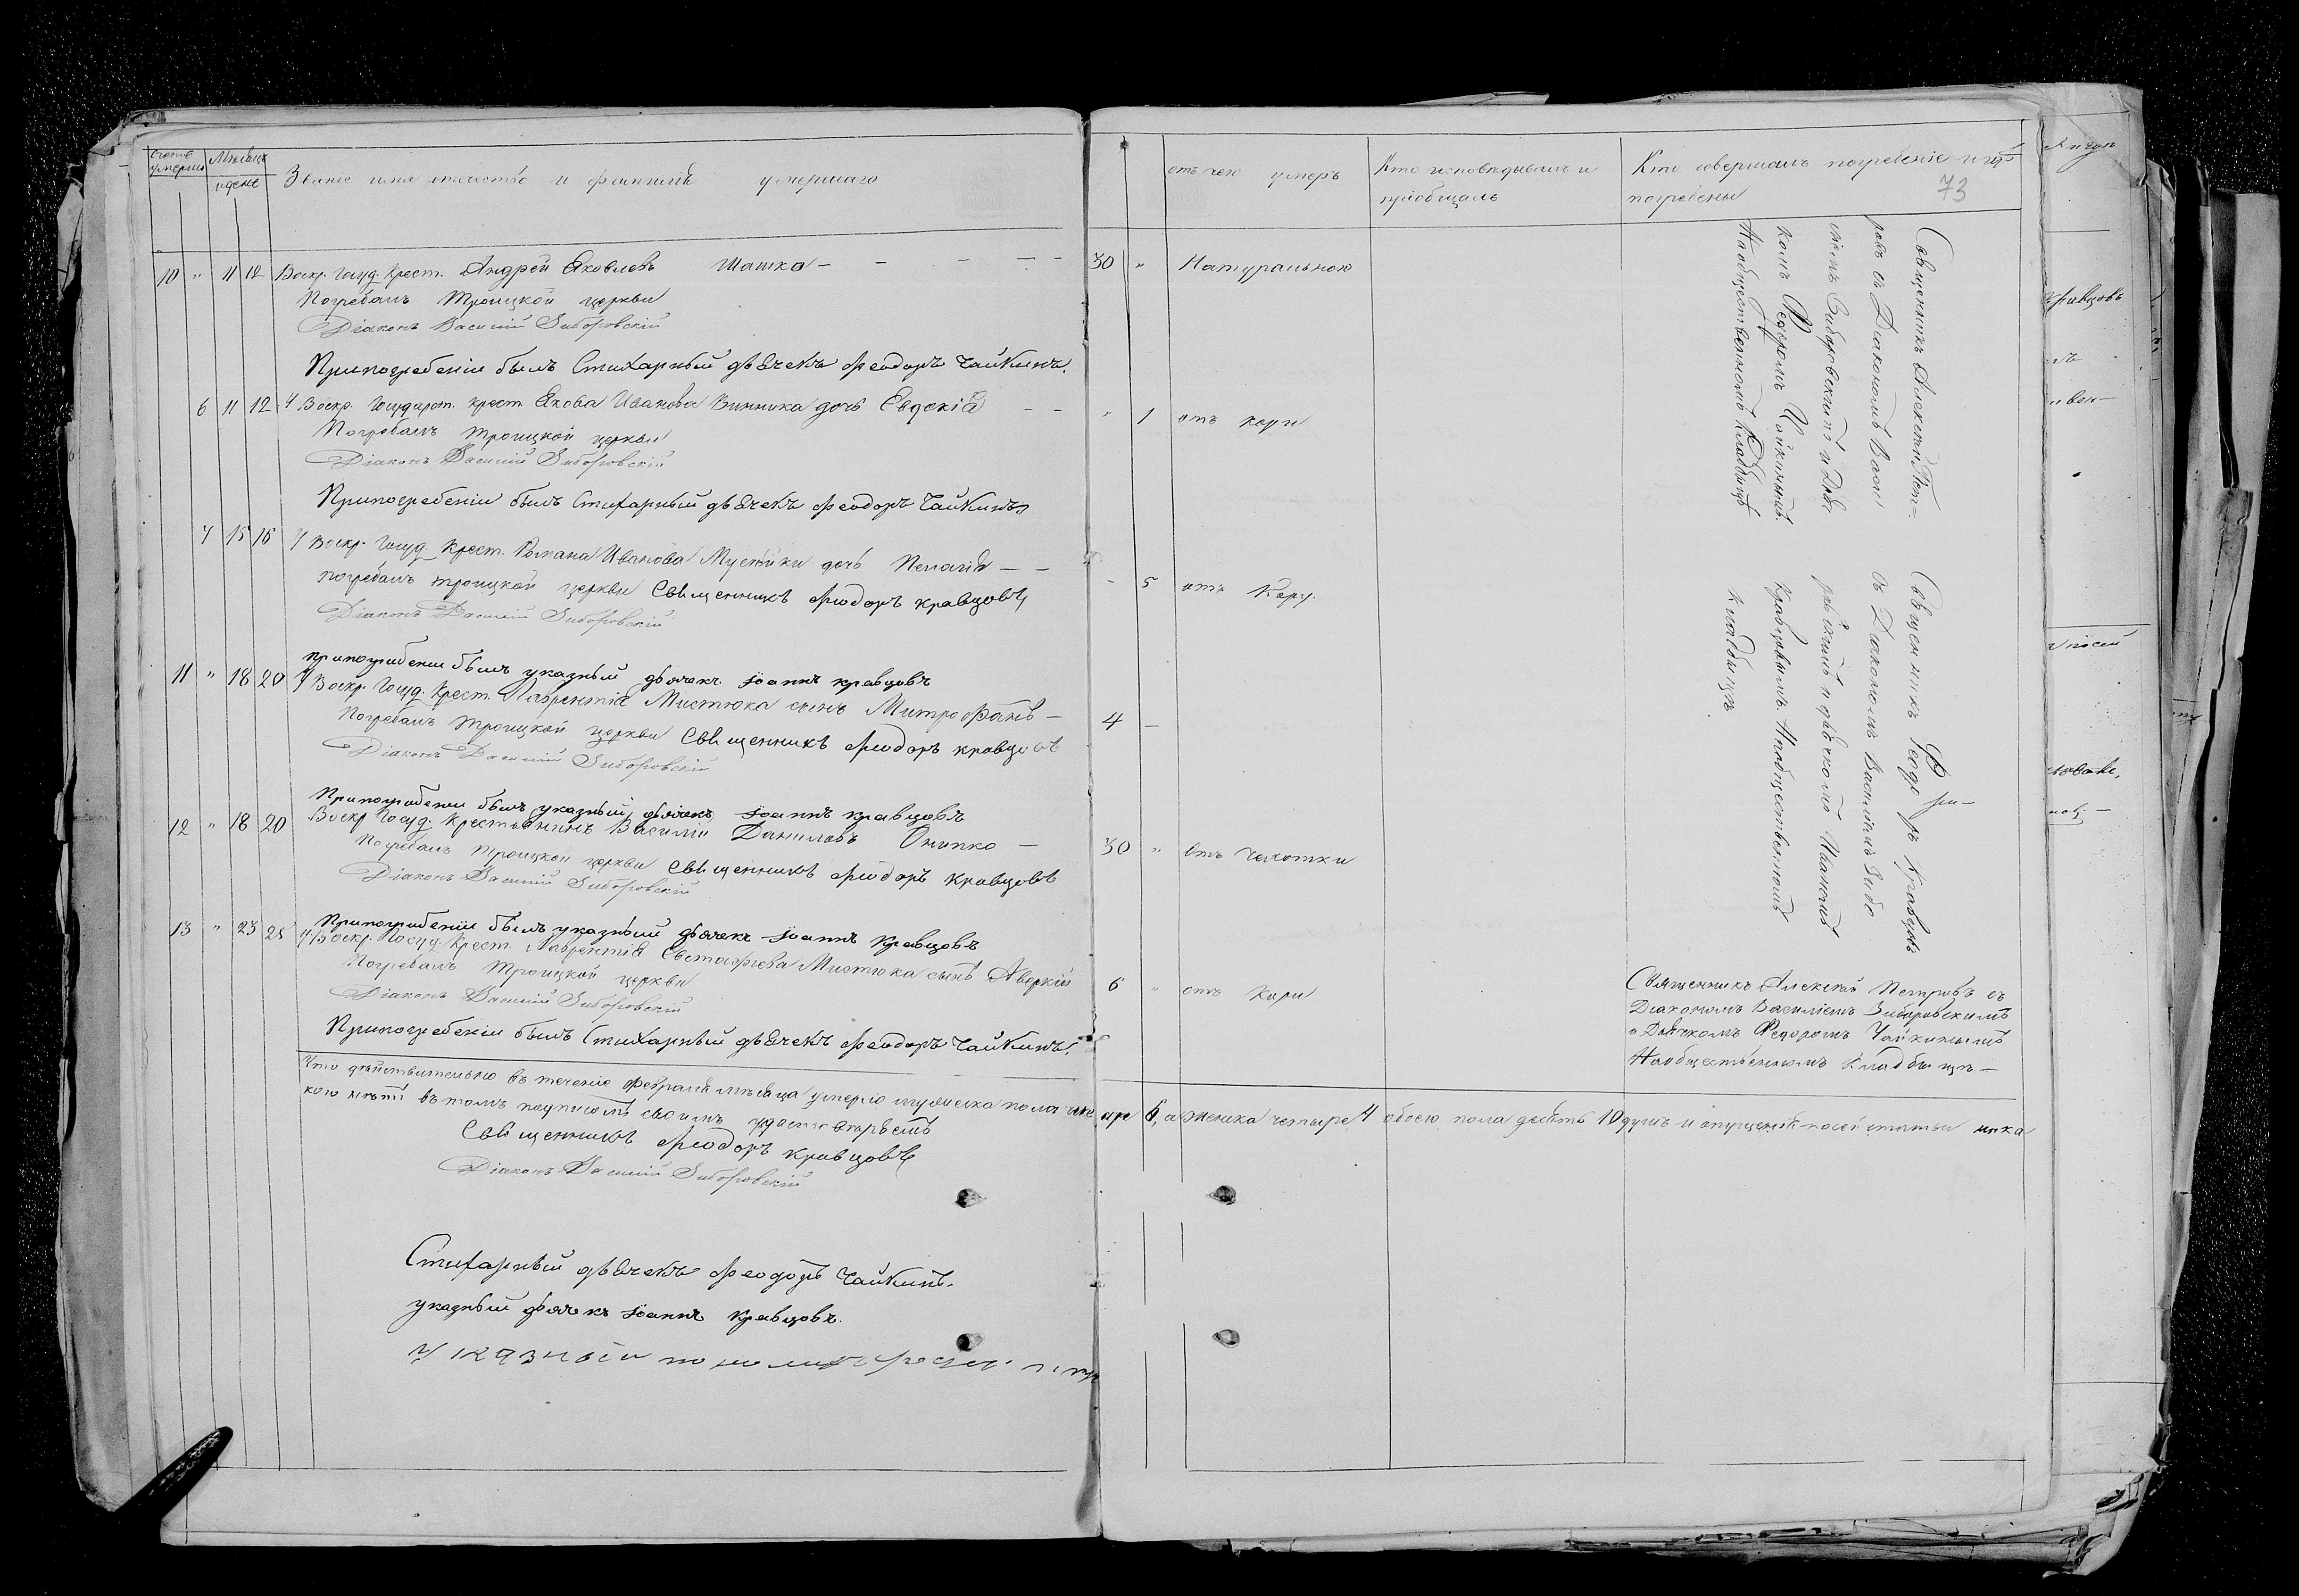 Счетъ умерших
Мѣсяцъ
и день
Званіе имя отчество и фамилія умершаго
10 " 11 12 Воскр. Госуд. Крест. Андрей Яковлевъ Шашко — — — — —
Погребалъ Троицкой церкви
Діаконъ Василій Зиборовскій
Припогребеніи былъ Стихарный дьячекъ Феодоръ Чайкинъ.
6 11 12 У Воскр. Государст. крест. Якова Иванова Винника дочь Евдокія — —
Погребалъ Троицкой церкви
Діаконъ Василій Зиборовскій
Припогребеніи былъ Стихарный дьячекъ Феодоръ Чайкинъ
7 15 16 У Воскр. Госуд. Крест. Романа Иванова дочь Пелагія — —
Погребалъ Троицкой церкви Священникъ Феодоръ Кравцовъ
Діаконъ Василій Зиборовскій
припогребении былъ указный дьячекъ Іоаннъ Кравцовъ
11 " 18 20 У Воскр. Госуд. Крест. Лаврентія Мистюка сынъ Митрофанъ —
Погребалъ Троицкой церкви Священникъ Феодоръ Кравцовъ
Діаконъ Василій Зиборовскій
Припогребении былъ указный дьячекъ Іоаннъ Кравцовъ
12 " 18 20 Воскр. Госуд. Крестьянинъ Василій Даниловъ Онипко —
Погребалъ Троицкой церкви Священникъ Феодоръ Кравцовъ
Діаконъ Василій Зиборовскій
Припогребении былъ указный дьячекъ Іоаннъ Кравцовъ
13 " 23 25 У Воскр. Госуд. Крест. Лаврентія Евстафіева Мистюка сынъ Аверкій
Погребалъ Троицкой церкви
Діаконъ Василій Зиборовскій
Припогребеніи былъ Стихарный дьячекъ Феодоръ Чайкинъ.
Что дѣйствительно въ теченіе Февраля мѣсяца умерло мужеска пола
кого нѣтъ въ томъ подписомъ своимъ удостоверяемъ
Священникъ Феодоръ Кравцовъ
Діаконъ Василій Зиборовскій
Стихарный дьячекъ Феодоръ Чайкинъ.
указный дьячекъ Іоаннъ Кравцовъ.
Указный
отъ чего умеръ
Кто исповѣдывалъ и
пріобщалъ
Кто совершалъ погребеніе и гдѣ
погребены
73
30 " Натуральною
" 1 отъ кори
- 5 отъ Кору.
4 —
30 " отъ Чахотки
6 " отъ Кори
Священникъ Алексѣй Пет=
ровъ съ Діакономъ Васи
ліемъ Зиборовскимъ и Дья
комъ Федоромъ Чайкинымъ.
Наобщественномъ Кладбищѣ
Священникъ Феодоръ Кравцовъ
съ Діакономъ Василіемъ Зибо
ровскимъ и дьячкомъ Иваномъ
Кравцовымъ Наобщественномъ
кладбищѣ
Священникъ Алексѣй Петровъ съ
Діакономъ Василіемъ Зиборовскимъ
и Дьячкомъ Федоромъ Чайкинымъ
Наобщественномъ Кладбищѣ —
6, а женска четыре 4 обоего пола десять 10 душъ и опущенія посей статьи ника